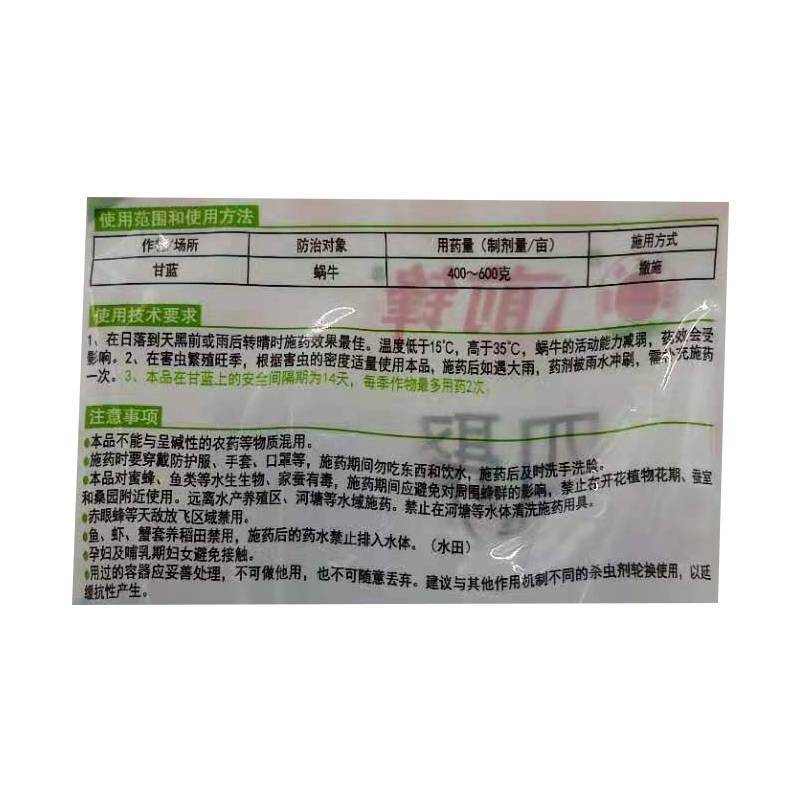 使用范围和使用方法
作物/场所 防治对象 用药量（制剂量/亩） 施用方式
甘蓝 蜗牛 400～600克 撒施
使用技术要求
1、在日落到天黑前或雨后转晴时施药效果最佳。温度低于15℃，高于35℃，蜗牛的活动能力减弱，药效会受
影响。2、在害虫繁殖旺季，根据害虫的密度适量使用本品，施药后如遇大雨，药剂被雨水冲刷，需补充施药
一次。3、本品在甘蓝上的安全间隔期为14天，每季作物最多用药2次。
注意事项
●本品不能与呈碱性的农药等物质混用。
●施药时要穿戴防护服、手套、口罩等，施药期间勿吃东西和饮水，施药后及时洗手洗脸。
●本品对蜜蜂、鱼类等水生生物、家蚕有毒，施药期间应避免对周围蜂群的影响，禁止在开花植物花期、蚕室
和桑园附近使用。远离水产养殖区、河塘等水域施药。禁止在河塘等水体清洗施药用具。
●赤眼蜂等天敌放飞区域禁用。
●鱼、虾、蟹套养稻田禁用，施药后的药水禁止排入水体。（水田）
●孕妇及哺乳期妇女避免接触。
●用过的容器应妥善处理，不可做他用，也不可随意丢弃。建议与其他作用机制不同的杀虫剂轮换使用，以延
缓抗性产生。